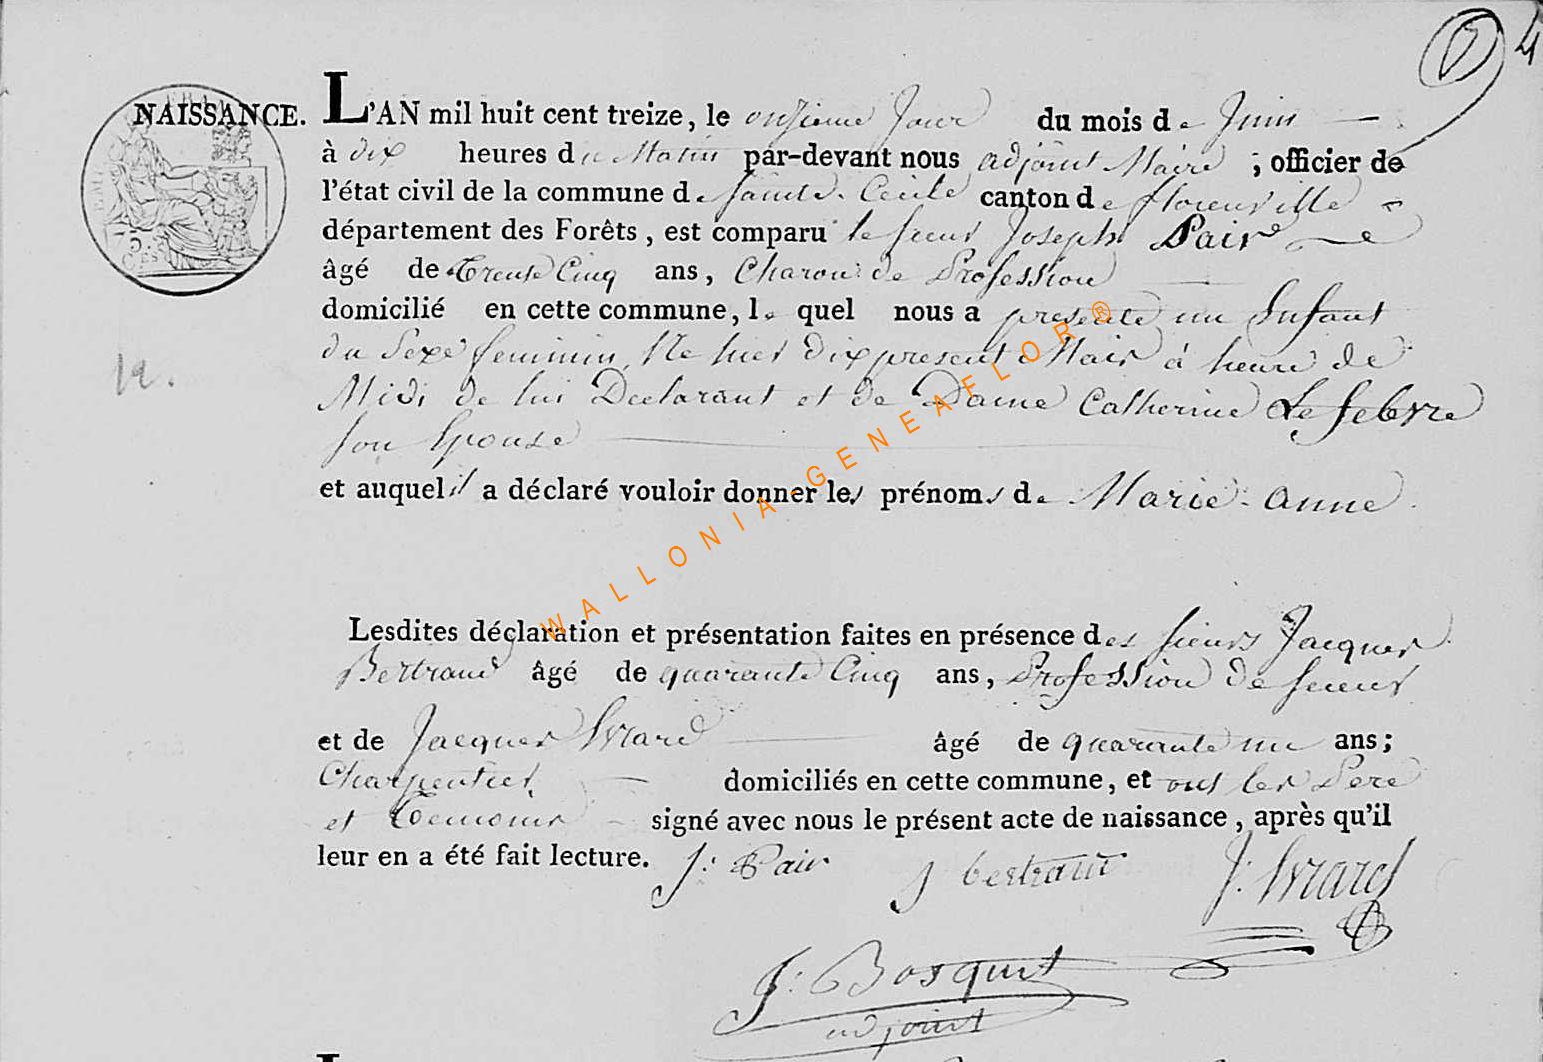 4
NAISSANCE. L'AN mil huit cent treize, le onzieme Jour du mois de Juin
à dix heures du Matin par-devant nous adjoint Maire ; officier de
l'état civil de la commune de Sainte Cecile canton de florenville
département des Forêts, est comparu le sieur Joseph Pair
âgé de Trente Cinq ans, Charon de Profession
domicilié en cette commune, le quel nous a presenté un Enfant
du Sexe feminin, Né hier dix present Mair à heure de
12.
Midi de lui Declarant et de Dame Catherine Lefebvre
son Epouse
et auquel il a déclaré vouloir donner les prénoms de Marie-anne.
Lesdites déclaration et présentation faites en présence des sieurs Jacques
Bertrand âgé de quarante Cinq ans, Profession de
et de Jacques Evrard âgé de quarante un ans;
Charpentier domiciliés en cette commune, et ont les Pere
et Temoins signé avec nous le présent acte de naissance, après qu'il
leur en a été fait lecture. J: Pair J bertrand J: Evrard
J: Bosquet
adjoint
WALLONIA-GENEAFLOR®